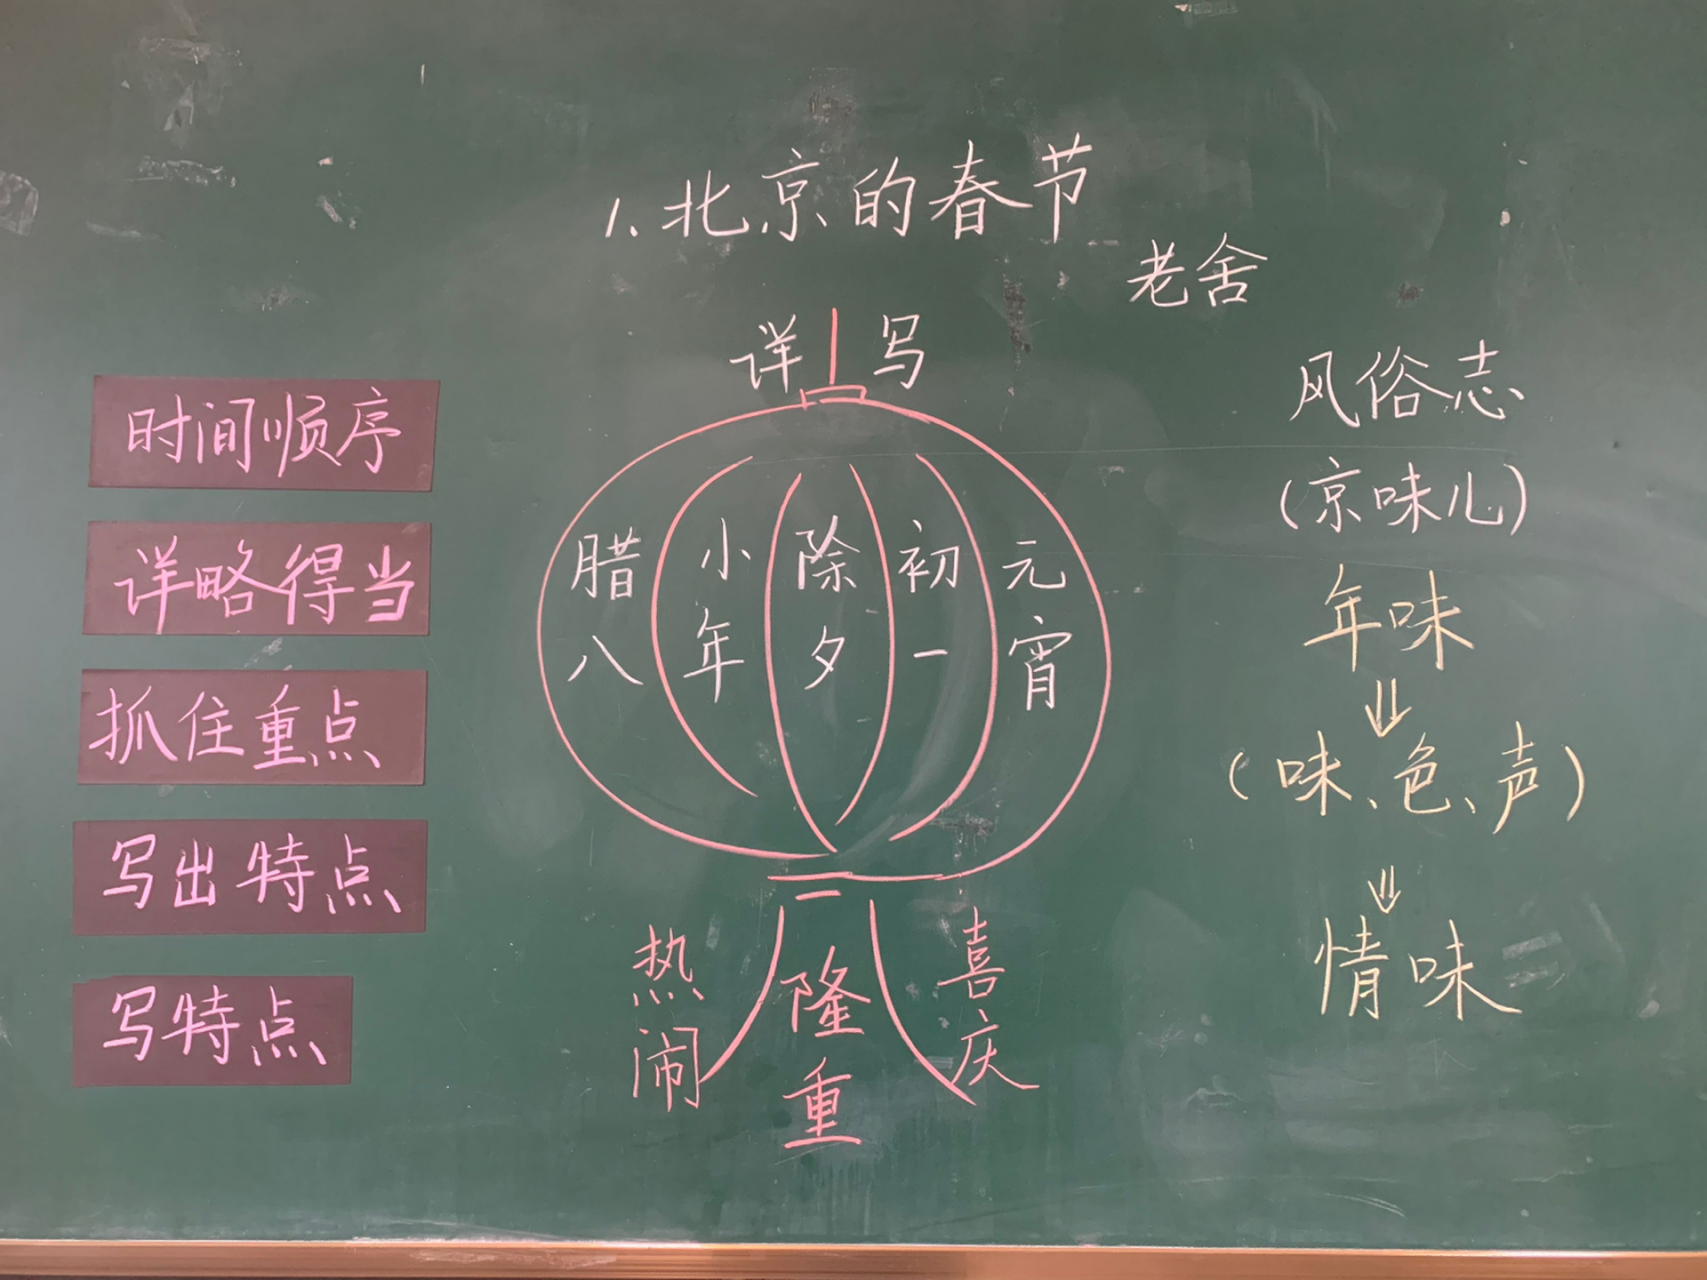 1.北京的春节
老舍
时间顺序
详略得当
抓住重点
写出特点
写特点
详写
腊八
小年
除夕
初一
元宵
热闹
隆重
喜庆
风俗志
(京味儿)
年味
(味、色、声)
情味